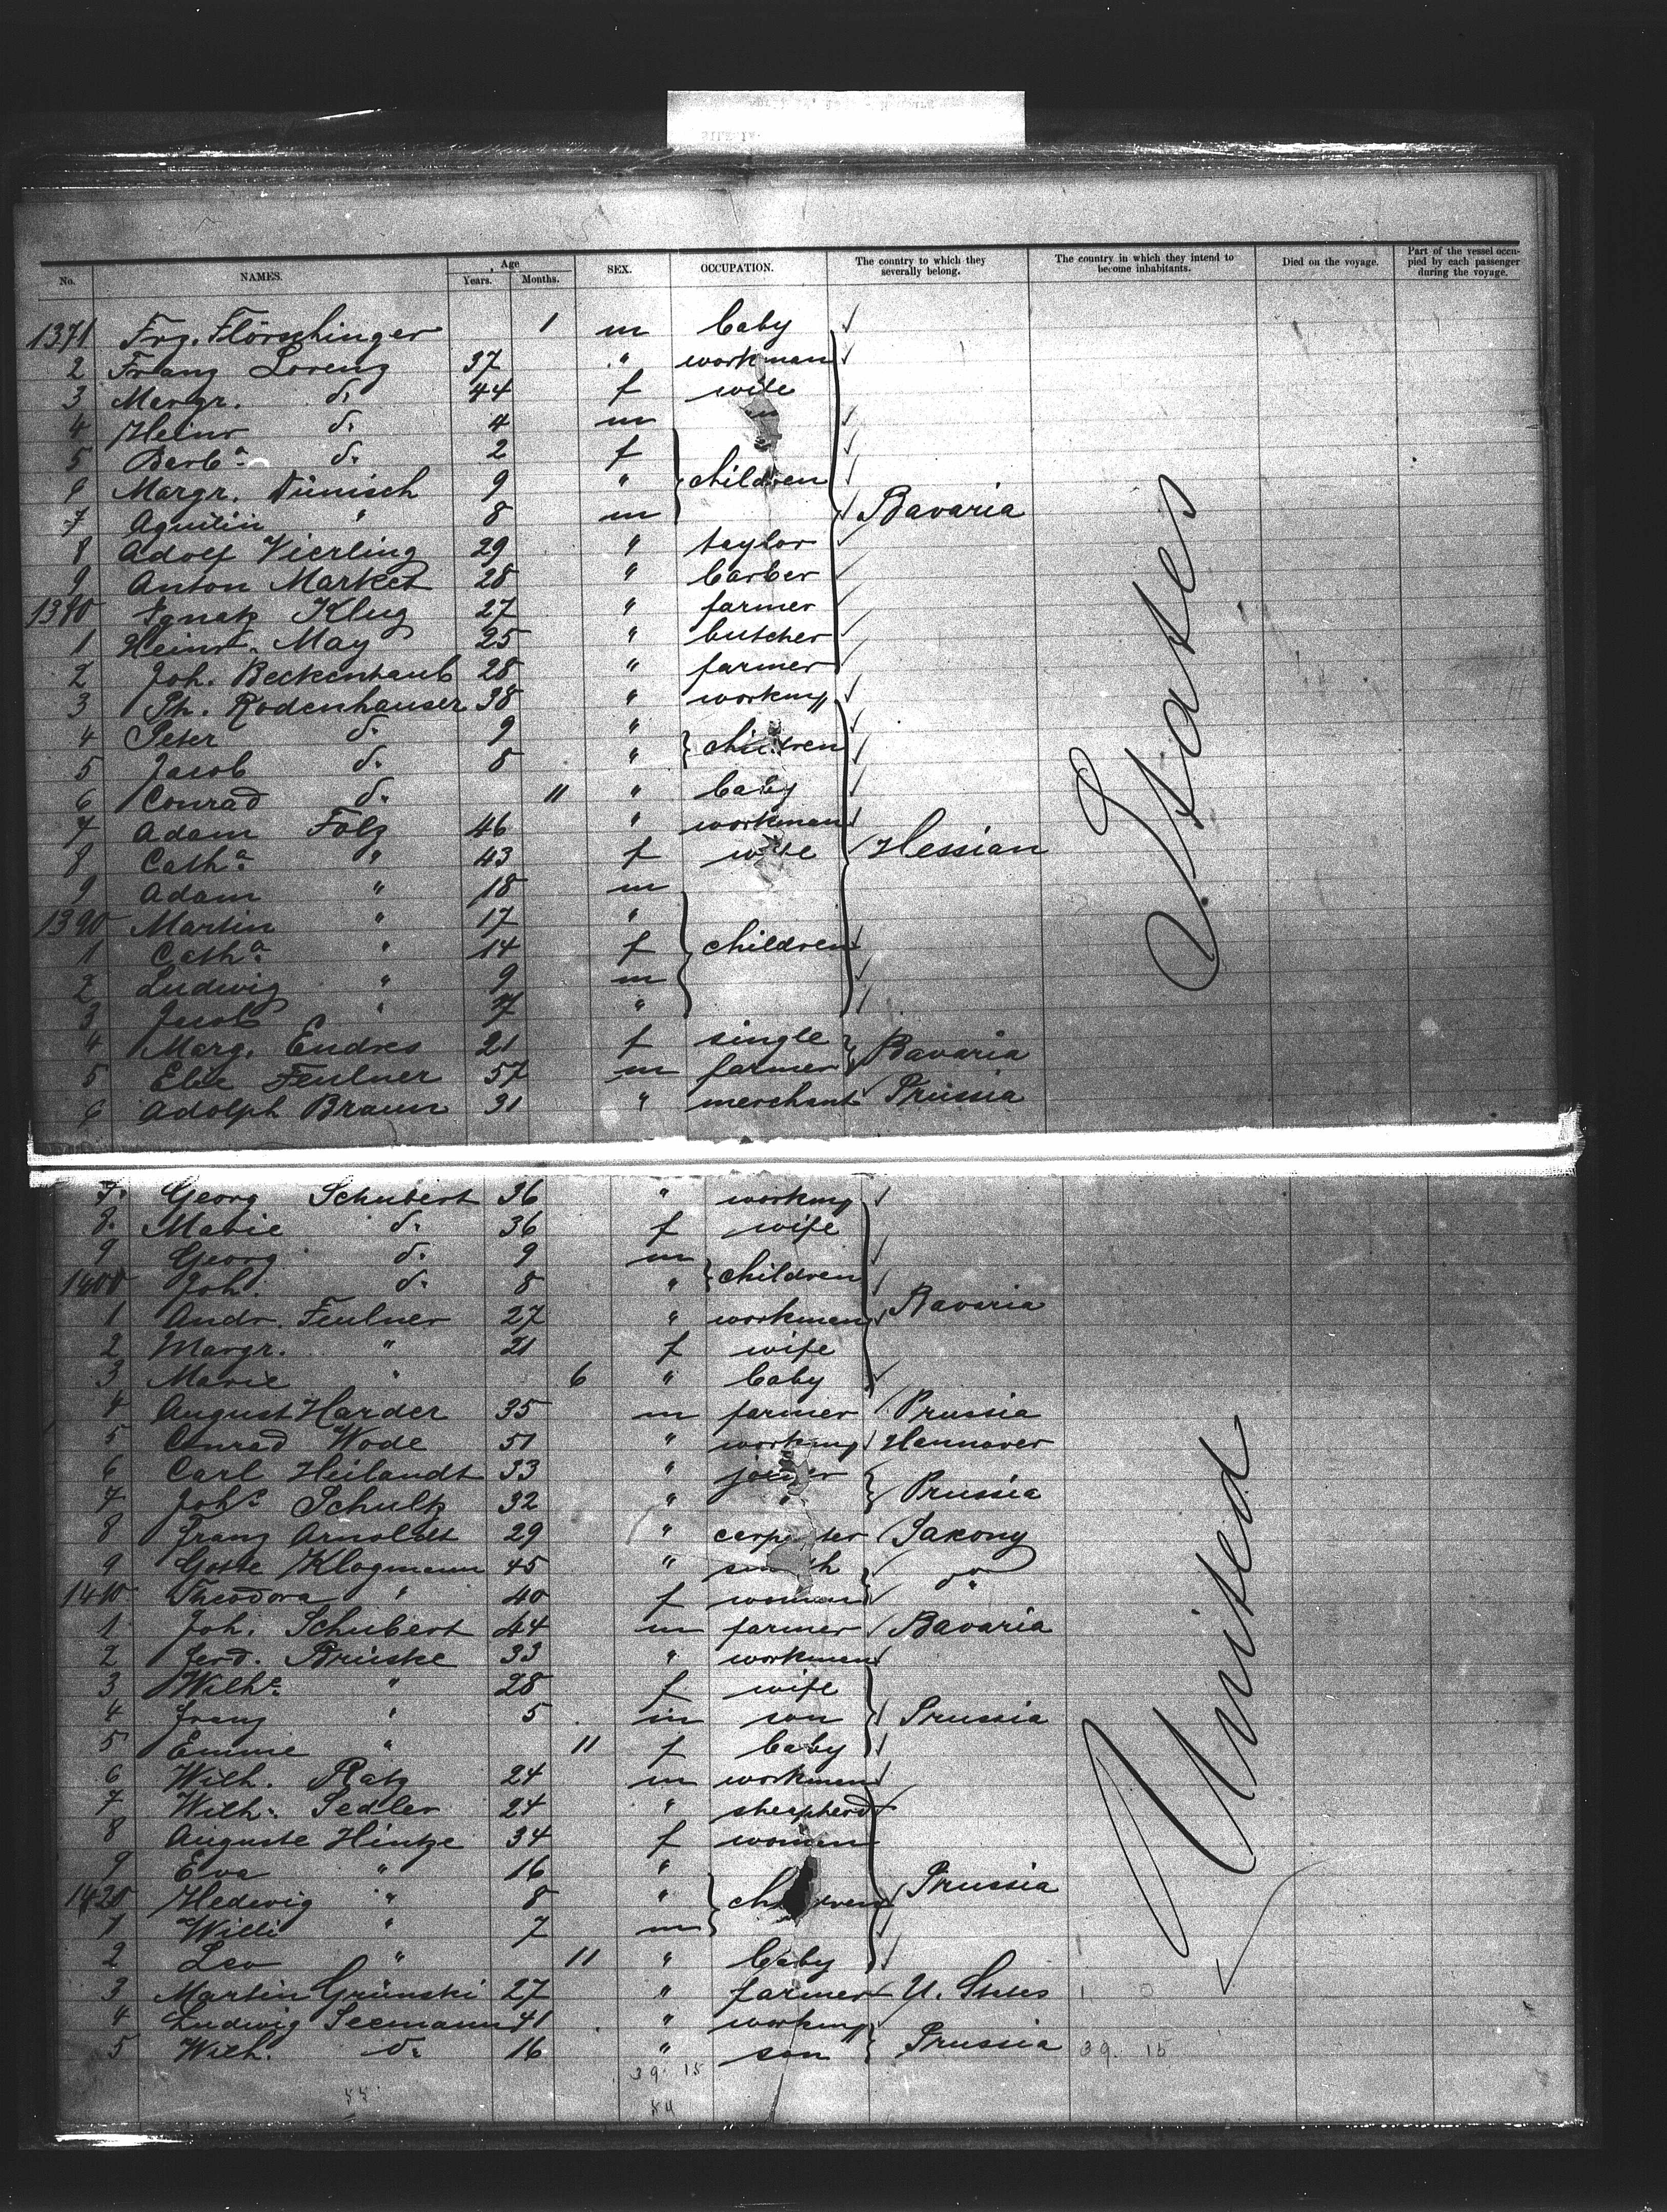 No. NAMES. Age Years. Months. SEX. OCCUPATION. The country to which they severally belong. The country in which they intend to become inhabitants. Died on the voyage. Part of the vessel occupied by each passenger during the voyage.
1371 Frz. Flörschinger 1 m baby
2 Franz Lorenz 37 " workman
3 Margr. do. 44 f wife
4 Heinr do. 4 m
5 Barba. do. 2 f
6 Margr. Dünisch 9 " children
7 Aquilin " 8 m Bavaria
8 Adolf Vierling 29 " taylor
9 Anton Market 28 " barber
1380 Ignatz Klug 27 " farmer
1 Heinr. May 25 " butcher
2 Joh. Beckenhaub 28 " farmer
3 Ph. Rodenhauser 38 " workmn
4 Peter do. 9 " children
5 Jacob do. 8 "
6 Conrad do. 11 " baby
7 Adam Folz 46 " workman
8 Catha. " 43 f wife Hessian
9 Adam " 18 m
1390 Martin " 17 "
1 Catha. " 14 f children
2 Ludwig " 9 m
3 Jacob " 7 "
4 Marg. Endres 21 f single Bavaria
5 Elie Feulner 57 m farmer
6 Adolph Braun 31 " merchant Prussia
States
7. Georg Schubert 36 " workmn
8. Marie do. 36 f wife
9 Georg do. 9 m children
1400 Joh. do. 8 "
1 Andr. Feulner 27 " workman Bavaria
2 Margr. " 21 f wife
3 Marie " 6 " baby
4 August Harder 35 m farmer Prussia
5 Conrad Wode 51 " workmn Hannover
6 Carl Heilandt 33 " joiner Prussia
7 Johs. Schultz 32 " "
8 Franz Arnoldt 29 " carpenter Saxony
9 Gotte Klogmann 45 " smith do.
1410 Theodora " 40 f woman
1 Joh. Schubert 44 m farmer Bavaria
2 Ferd. Brüske 33 " workman
3 Wilhe. " 28 f wife
4 Franz " 5 m son Prussia
5 Emmie " 11 f baby
6 Wilh. Ratz 24 m workman
7 Wilh. Sedler 24 " shepherd
8 Auguste Hintze 34 f woman
9 Eva " 16 " Prussia
1420 Hedwig " 8 " children
1 Willi " 7 m
2 Leo " 11 " baby
3 Martin Grünski 27 " farmer U. States
4 Ludwig Seemann 41 " workmn
5 Wilh. do. 16 " son Prussia 39. 15
United
39. 15